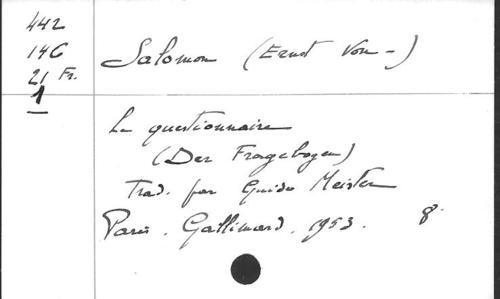 442
14C
21 Fr.
1
Salomon (Ernst Von -)
Le questionnaire
(Der Fragebogen)
Trad. par Guido Meister
Paris. Gallimard. 1953. 8°